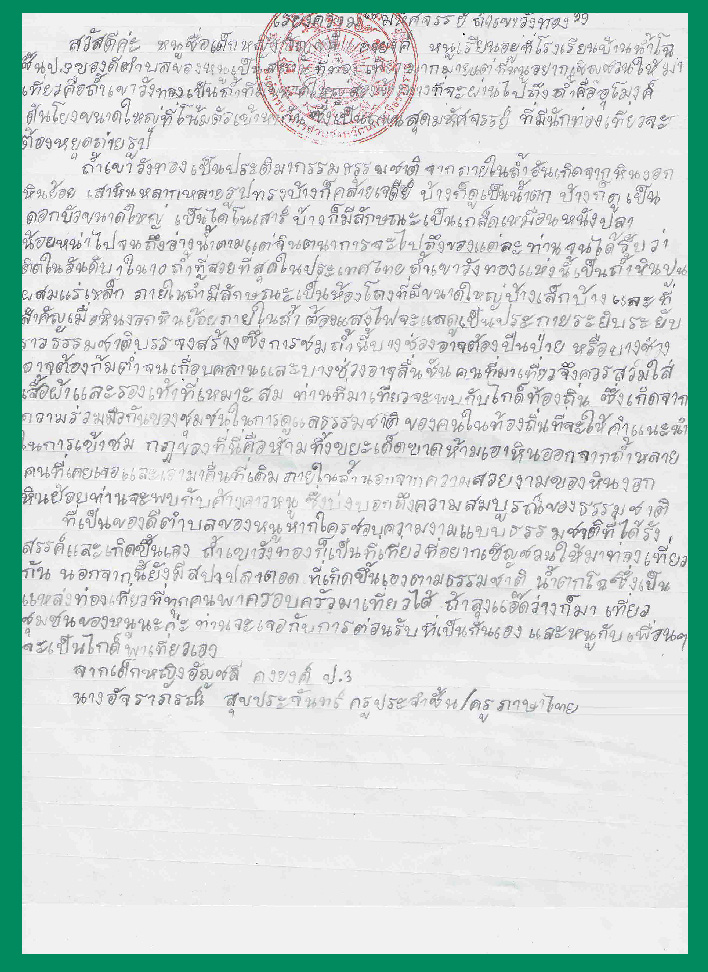 เรียงความ มหัศจรรย์ ถ้ำเขาวังทอง
สวัสดีค่ะ หนูชื่อเด็กหญิงอัญชลี คงยงค์ หนูเรียนอยู่ที่โรงเรียนบ้านน้ำโฉ
ชั้นป.3ของดีตำบลของหนูเป็นสถานที่ท่องเที่ยว มากมายแต่ที่หนูอยากเชิญชวนให้มา
เที่ยวคือถ้ำเขาวังทองเป็นถ้ำที่ ที่จะผ่านไปถึงถ้ำคืออุโมงค์
ต้นโยงขนาดใหญ่ที่โน้มตัวเข้าหากัน ซึ่งเป็น สุดมหัศจรรย์ ที่มีนักท่องเที่ยวจะ
ต้องหยุดถ่ายรูป
ถ้ำเขาวังทองเป็นประติมากรรมธรรมชาติ จากภายในถ้ำอันเกิดจากหินงอก
หินย้อย เสาหินหลากหลายรูปทรงบ้างก็คล้ายเจดีย์ บ้างก็ดูเป็นน้ำตก บ้างก็ดูเป็น
ดอกบัวขนาดใหญ่ เป็นไดโนเสาร์ บ้างก็มีลักษณะเป็นเกล็ดเหมือนหนังปลา
น้อยหน่าไปจนถึงอ่างน้ำตามแต่จินตนาการจะไปถึงของแต่ละท่านจนได้รับว่า
ติดในอันดับ1ใน10 ถ้ำที่สวยที่สุดในประเทศไทย ถ้ำเขาวังทองแห่งนี้เป็นถ้ำหินปูน
ผสมแร่เหล็ก ภายในถ้ำมีลักษณะเป็นห้องโถงที่มีขนาดใหญ่บ้างเล็กบ้าง และที่
สำคัญเมื่อหินงอกหินย้อยภายในถ้ำต้องแสงไฟจะแลดูเป็นประกายระยิบระยับ
ราวธรรมชาติบรรจงสร้างซึ่งการชมถ้ำนี้บางช่วงอาจต้องปีนป่าย หรือบางช่วง
อาจต้องก้มต่ำจนเกือบคลานและบางช่วงอาจลื่นชัน คนที่มาเที่ยวจึงควรสวมใส่
เสื้อผ้าและรองเท้าที่เหมาะสม ท่านที่มาเที่ยวจะพบกับไกด์ท้องถิ่น ซึ่งเกิดจาก
ความร่วมมือกันของชุมชนในการดูแลธรรมชาติ ของคนในท้องถิ่นที่จะให้คำแนะนำ
ในการเข้าชม กฎของที่นี่คือห้ามทิ้งขยะเด็ดขาดห้ามเอาหินออกจากถ้ำหลาย
คนที่เคยเจอและเอามาคืนที่เดิม ภายในถ้ำนอกจากความสวยงามของหินงอก
หินย้อยท่านจะพบกับค้างคาวหนู ซึ่งบ่งบอกถึงความสมบูรณ์ของธรรมชาติ
ที่เป็นของดีตำบลของหนูหากใครชอบความงามแบบธรรมชาติที่ได้รัง
สรรค์และเกิดขึ้นเอง ถ้ำเขาวังทองก็เป็นที่เที่ยวที่อยากเชิญชวนให้มาท่องเที่ยว
กัน นอกจากนี้ยังมีสปาปลาตอด ที่เกิดขึ้นเองตามธรรมชาติ น้ำตกโฉ ซึ่งเป็น
แหล่งท่องเที่ยวที่ทุกคนพาครอบครัวมาเที่ยวได้ ถ้าลุงแอ๊ดว่างก็มา เที่ยว
ชุมชนของหนูนะค่ะ ท่านจะเจอกับการต้อนรับที่เป็นกันเอง และหนูกับเพื่อนๆ
จะเป็นไกด์พาเที่ยวเอง
จากเด็กหญิงอัญชลี คงยงค์ ป.3
นางอัจราภรณ์ สุขประจันทร์ ครูประจำชั้น/ครูภาษาไทย